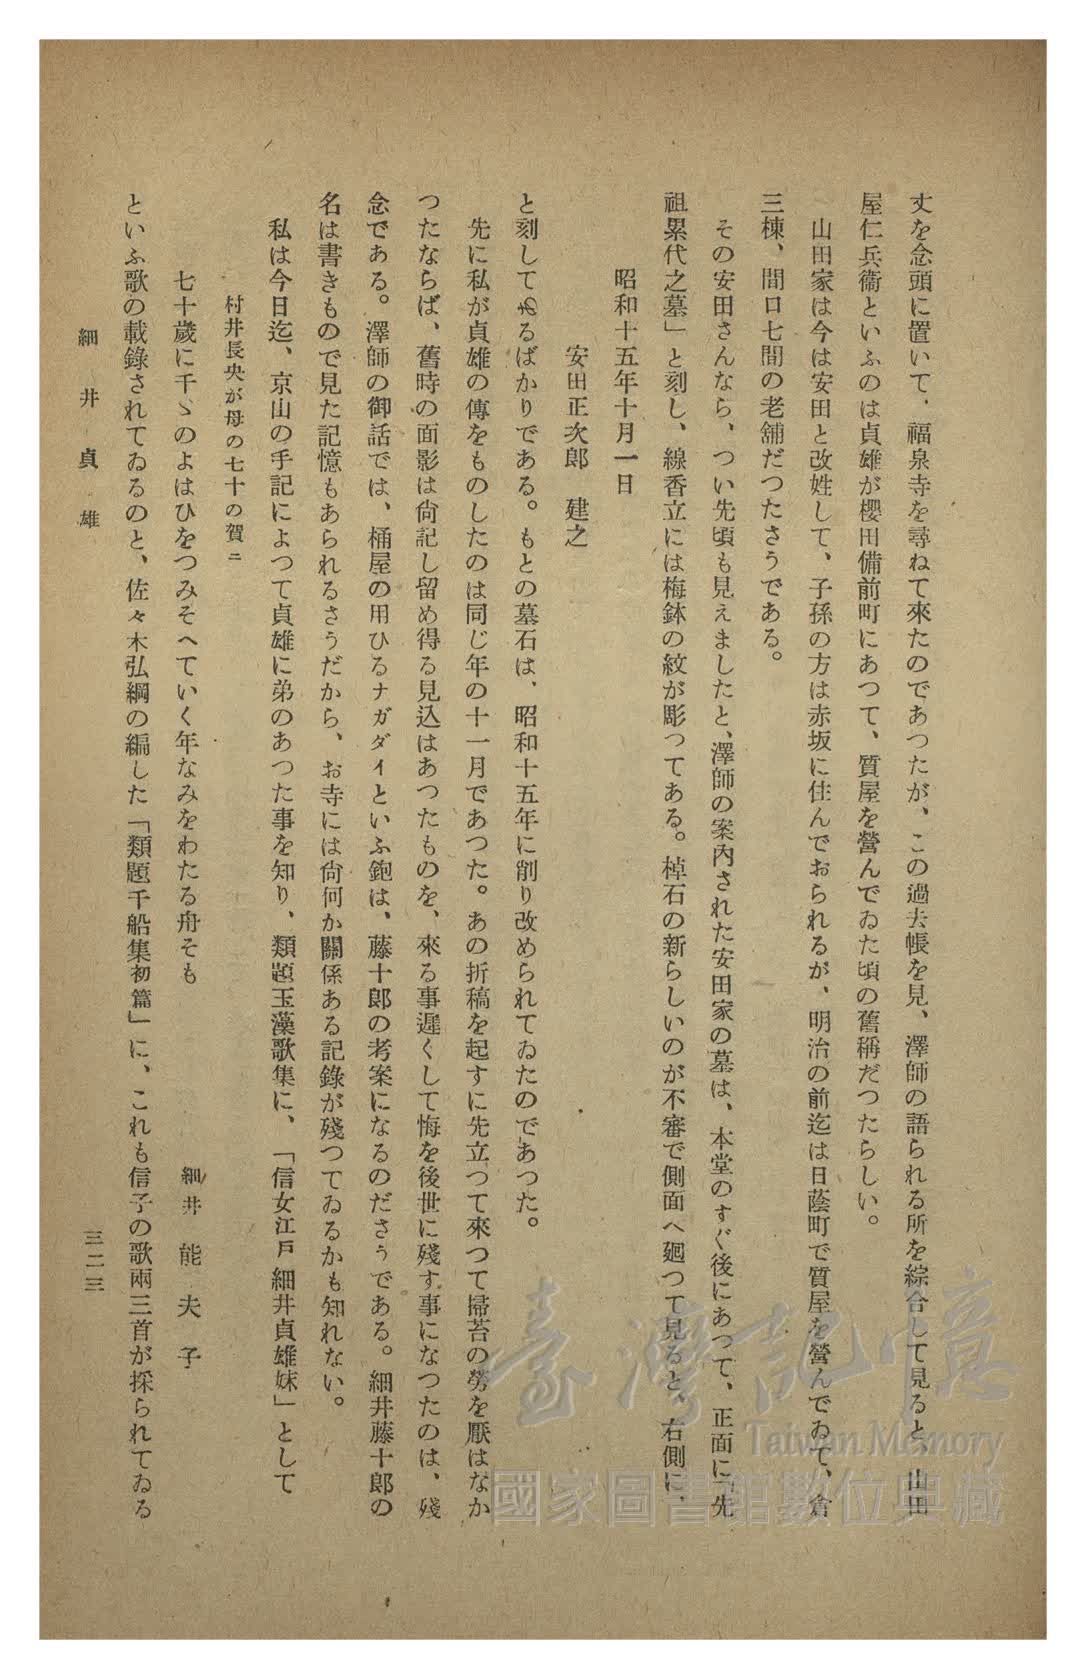 丈を念頭に置いて、福泉寺を尋ねて來たのであつたが、この過去帳を見、澤師の語られる所を綜合して見ると、山田
屋仁兵衞といふのは貞雄が櫻田備前町にあつて、質屋を營んでゐた頃の舊稱だつたらしい。
山田家は今は安田と改姓して、子孫の方は赤坂に住んでおられるが、明治の前迄は日蔭町で質屋を營んでゐて、倉
三棟、間口七間の老舖だつたさうである。
その安田さんなら、つい先頃も見えましたと、澤師の案内された安田家の墓は、本堂のすぐ後にあつて、正面に「先
祖累代之墓」と刻し、線香立には梅鉢の紋が彫つてある。棹石の新らしいのが不審で側面へ廻つて見ると、右側に、
昭和十五年十月一日
安田正次郎 建之
と刻してあるばかりである。もとの墓石は、昭和十五年に削り改められてゐたのであつた。
先に私が貞雄の傳をものしたのは同じ年の十一月であつた。あの折稿を起すに先立つて來つて掃苔の勞を厭はなか
つたならば、舊時の面影は尙記し留め得る見込はあつたものを、來る事遲くして悔を後世に殘す事になつたのは、殘
念である。澤師の御話では、桶屋の用ひるナガダイといふ鉋は、藤十郎の考案になるのださうである。細井藤十郎の
名は書きもので見た記憶もあられるさうだから、お寺には尙何か關係ある記錄が殘つてゐるかも知れない。
私は今日迄、京山の手記によつて貞雄に弟のあつた事を知り、類題玉藻歌集に、「信女江戶細井貞雄妹」として
村井長央が母の七十の賀ニ
細井 能夫子
七十歲に千ゞのよはひをつみそへていく年なみをわたる舟そも
といふ歌の載錄されてゐるのと、佐々木弘綱の編した「類題千船集初篇」に、これも信子の歌兩三首が採られてゐる
細井貞雄
三二三
臺灣記憶
Taiwan Memory
國家圖書館數位典藏